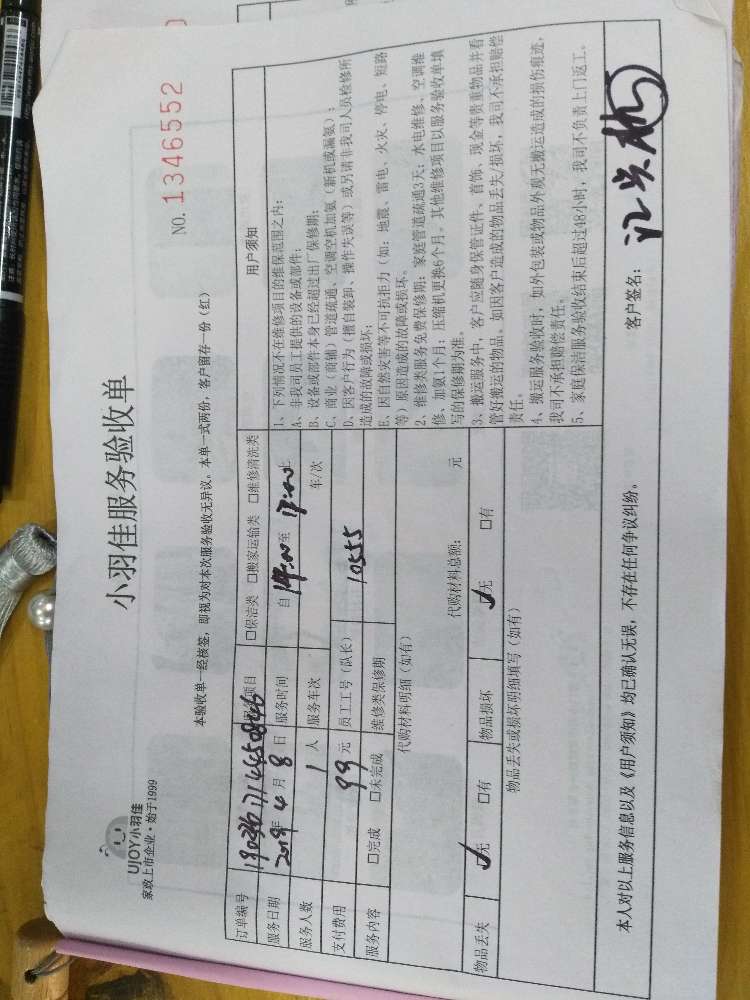 UJOY小羽佳
家政上市企业·始于1999
小羽佳服务验收单
NO. 1346552
本验收单一经核签，即视为对本次服务验收无异议。本单一式两份，客户留存一份（红）
订单编号 服务项目 □保洁类 □搬家运输类 □维修清洗类
服务日期 2019年 4 月 8 日 服务时间 自 14:00 至 17:00 止
服务人数 1 人 服务车次 车/次
支付费用 99 元 员工工号（队长） 10555
服务内容 □完成 □未完成 维修类保修期
代购材料明细（如有）
代购材料总额： 元
物品丢失 ☑无 □有 物品损坏 ☑无 □有
物品丢失或损坏明细填写（如有）
用户须知
1、下列情况不在维修项目的维保范围之内：
A、非我司员工提供的设备或部件；
B、设备或部件本身已经超过出厂保修期；
C、商业（商铺）管道疏通、空调空机加氨（新机或漏氨）；
D、因客户行为（擅自装卸、操作失误等）或另请非我司人员检修所
造成的故障或损坏；
E、因自然灾害等不可抗拒力（如：地震、雷电、火灾、停电、短路
等）原因造成的故障或损坏。
2、维修类服务免费保修期：家庭管道疏通3天；水电维修、空调维
修、加氨1个月；压缩机更换6个月。其他维修项目以服务验收单填
写的保修期为准。
3、搬运服务中，客户应随身保管证件、首饰、现金等贵重物品并看
管好搬运的物品。如因客户造成的物品丢失/损坏，我司不承担赔偿
责任。
4、搬运服务验收时，如外包装或物品外观无搬运造成的损伤痕迹，
我司不承担赔偿责任。
5、家庭保洁服务验收结束后超过48小时，我司不负责上门返工。
本人对以上服务信息以及《用户须知》均已确认无误，不存在任何争议纠纷。
客户签名：